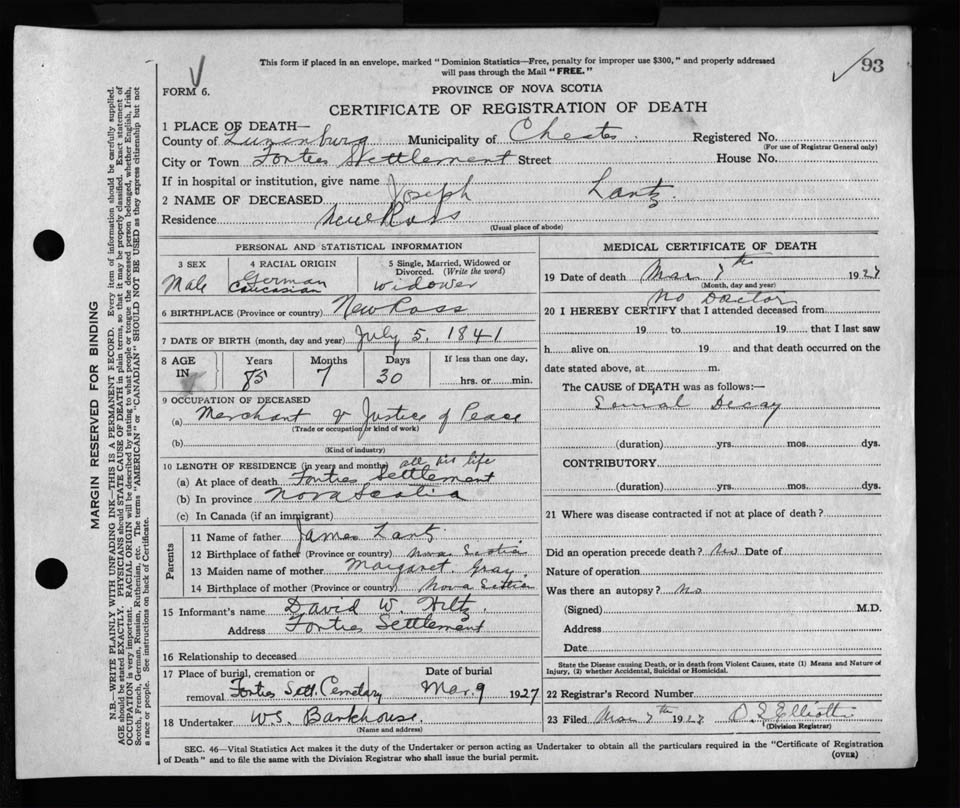 This form if placed in an envelope, marked "Dominion Statistics—Free, penalty for improper use $300," and properly addressed
will pass through the Mail "FREE."
93
FORM 6.
PROVINCE OF NOVA SCOTIA
CERTIFICATE OF REGISTRATION OF DEATH
1 PLACE OF DEATH—
County of Lunenburg Municipality of Chester Registered No.
(For use of Registrar General only)
City or Town Forties Settlement Street House No.
If in hospital or institution, give name
2 NAME OF DECEASED Joseph Lantz
Residence New Ross
(Usual place of abode)
PERSONAL AND STATISTICAL INFORMATION
3 SEX Male
4 RACIAL ORIGIN German Caucasian
5 Single, Married, Widowed or
Divorced. (Write the word)
widower
6 BIRTHPLACE (Province or country) New Ross
7 DATE OF BIRTH (month, day and year) July 5, 1841
8 AGE IN Years 85 Months 7 Days 30 If less than one day,
hrs. or min.
9 OCCUPATION OF DECEASED
(a) Merchant & Justice of Peace
(Trade or occupation or kind of work)
(b)
(Kind of industry)
10 LENGTH OF RESIDENCE (in years and months) all his life
(a) At place of death Forties Settlement
(b) In province Nova Scotia
(c) In Canada (if an immigrant)
Parents
11 Name of father James Lantz
12 Birthplace of father (Province or country) Nova Scotia
13 Maiden name of mother Margaret Gray
14 Birthplace of mother (Province or country) Nova Scotia
15 Informant's name David W. Hiltz
Address Forties Settlement
16 Relationship to deceased
17 Place of burial, cremation or Date of burial
removal Forties Sett. Cemetary Mar. 9 1927
18 Undertaker W.S. Barkhouse.
(Name and address)
MEDICAL CERTIFICATE OF DEATH
19 Date of death Mar 7th 1927
(Month, day and year)
No Doctor
20 I HEREBY CERTIFY that I attended deceased from
19 to 19 that I last saw
h alive on 19 and that death occurred on the
date stated above, at m.
The CAUSE of DEATH was as follows:—
Senial Decay
(duration) yrs. mos. dys.
CONTRIBUTORY
(duration) yrs. mos. dys.
21 Where was disease contracted if not at place of death?
Did an operation precede death? No Date of
Nature of operation
Was there an autopsy? No
(Signed) M.D.
Address
Date
State the Disease causing Death, or in death from Violent Causes, state (1) Means and Nature of
Injury, (2) whether Accidental, Suicidal or Homicidal.
22 Registrar's Record Number
23 Filed Mar 7th 1927 Elliott
(Division Registrar)
SEC. 46—Vital Statistics Act makes it the duty of the Undertaker or person acting as Undertaker to obtain all the particulars required in the "Certificate of Registration
of Death" and to file the same with the Division Registrar who shall issue the burial permit.
(OVER)
MARGIN RESERVED FOR BINDING
N.B.—WRITE PLAINLY WITH UNFADING INK—THIS IS A PERMANENT RECORD. Every item of information should be carefully supplied.
AGE should be stated EXACTLY. PHYSICIANS should STATE CAUSE OF DEATH in plain terms, so that it may be properly classified. Exact statement of
OCCUPATION is very important. RACIAL ORIGIN will be described by stating to what people or tongue the deceased person belonged, whether English, Irish,
Scotch, French, German, Russian, Ruthenian, etc. The terms "AMERICAN" or "CANADIAN" SHOULD NOT BE USED as they express citizenship but not
a race or people. See instructions on back of Certificate.